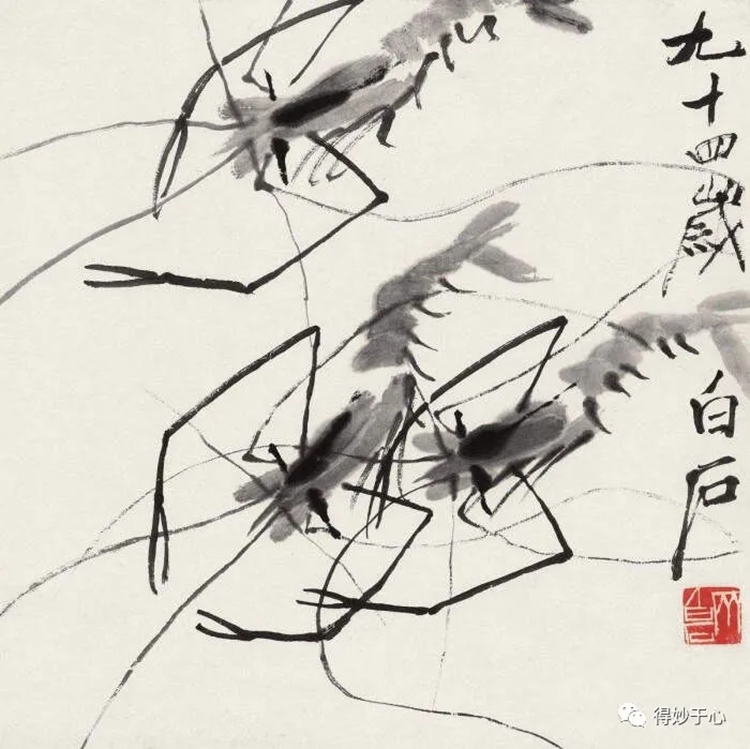 九十四歲
白石
得妙于心